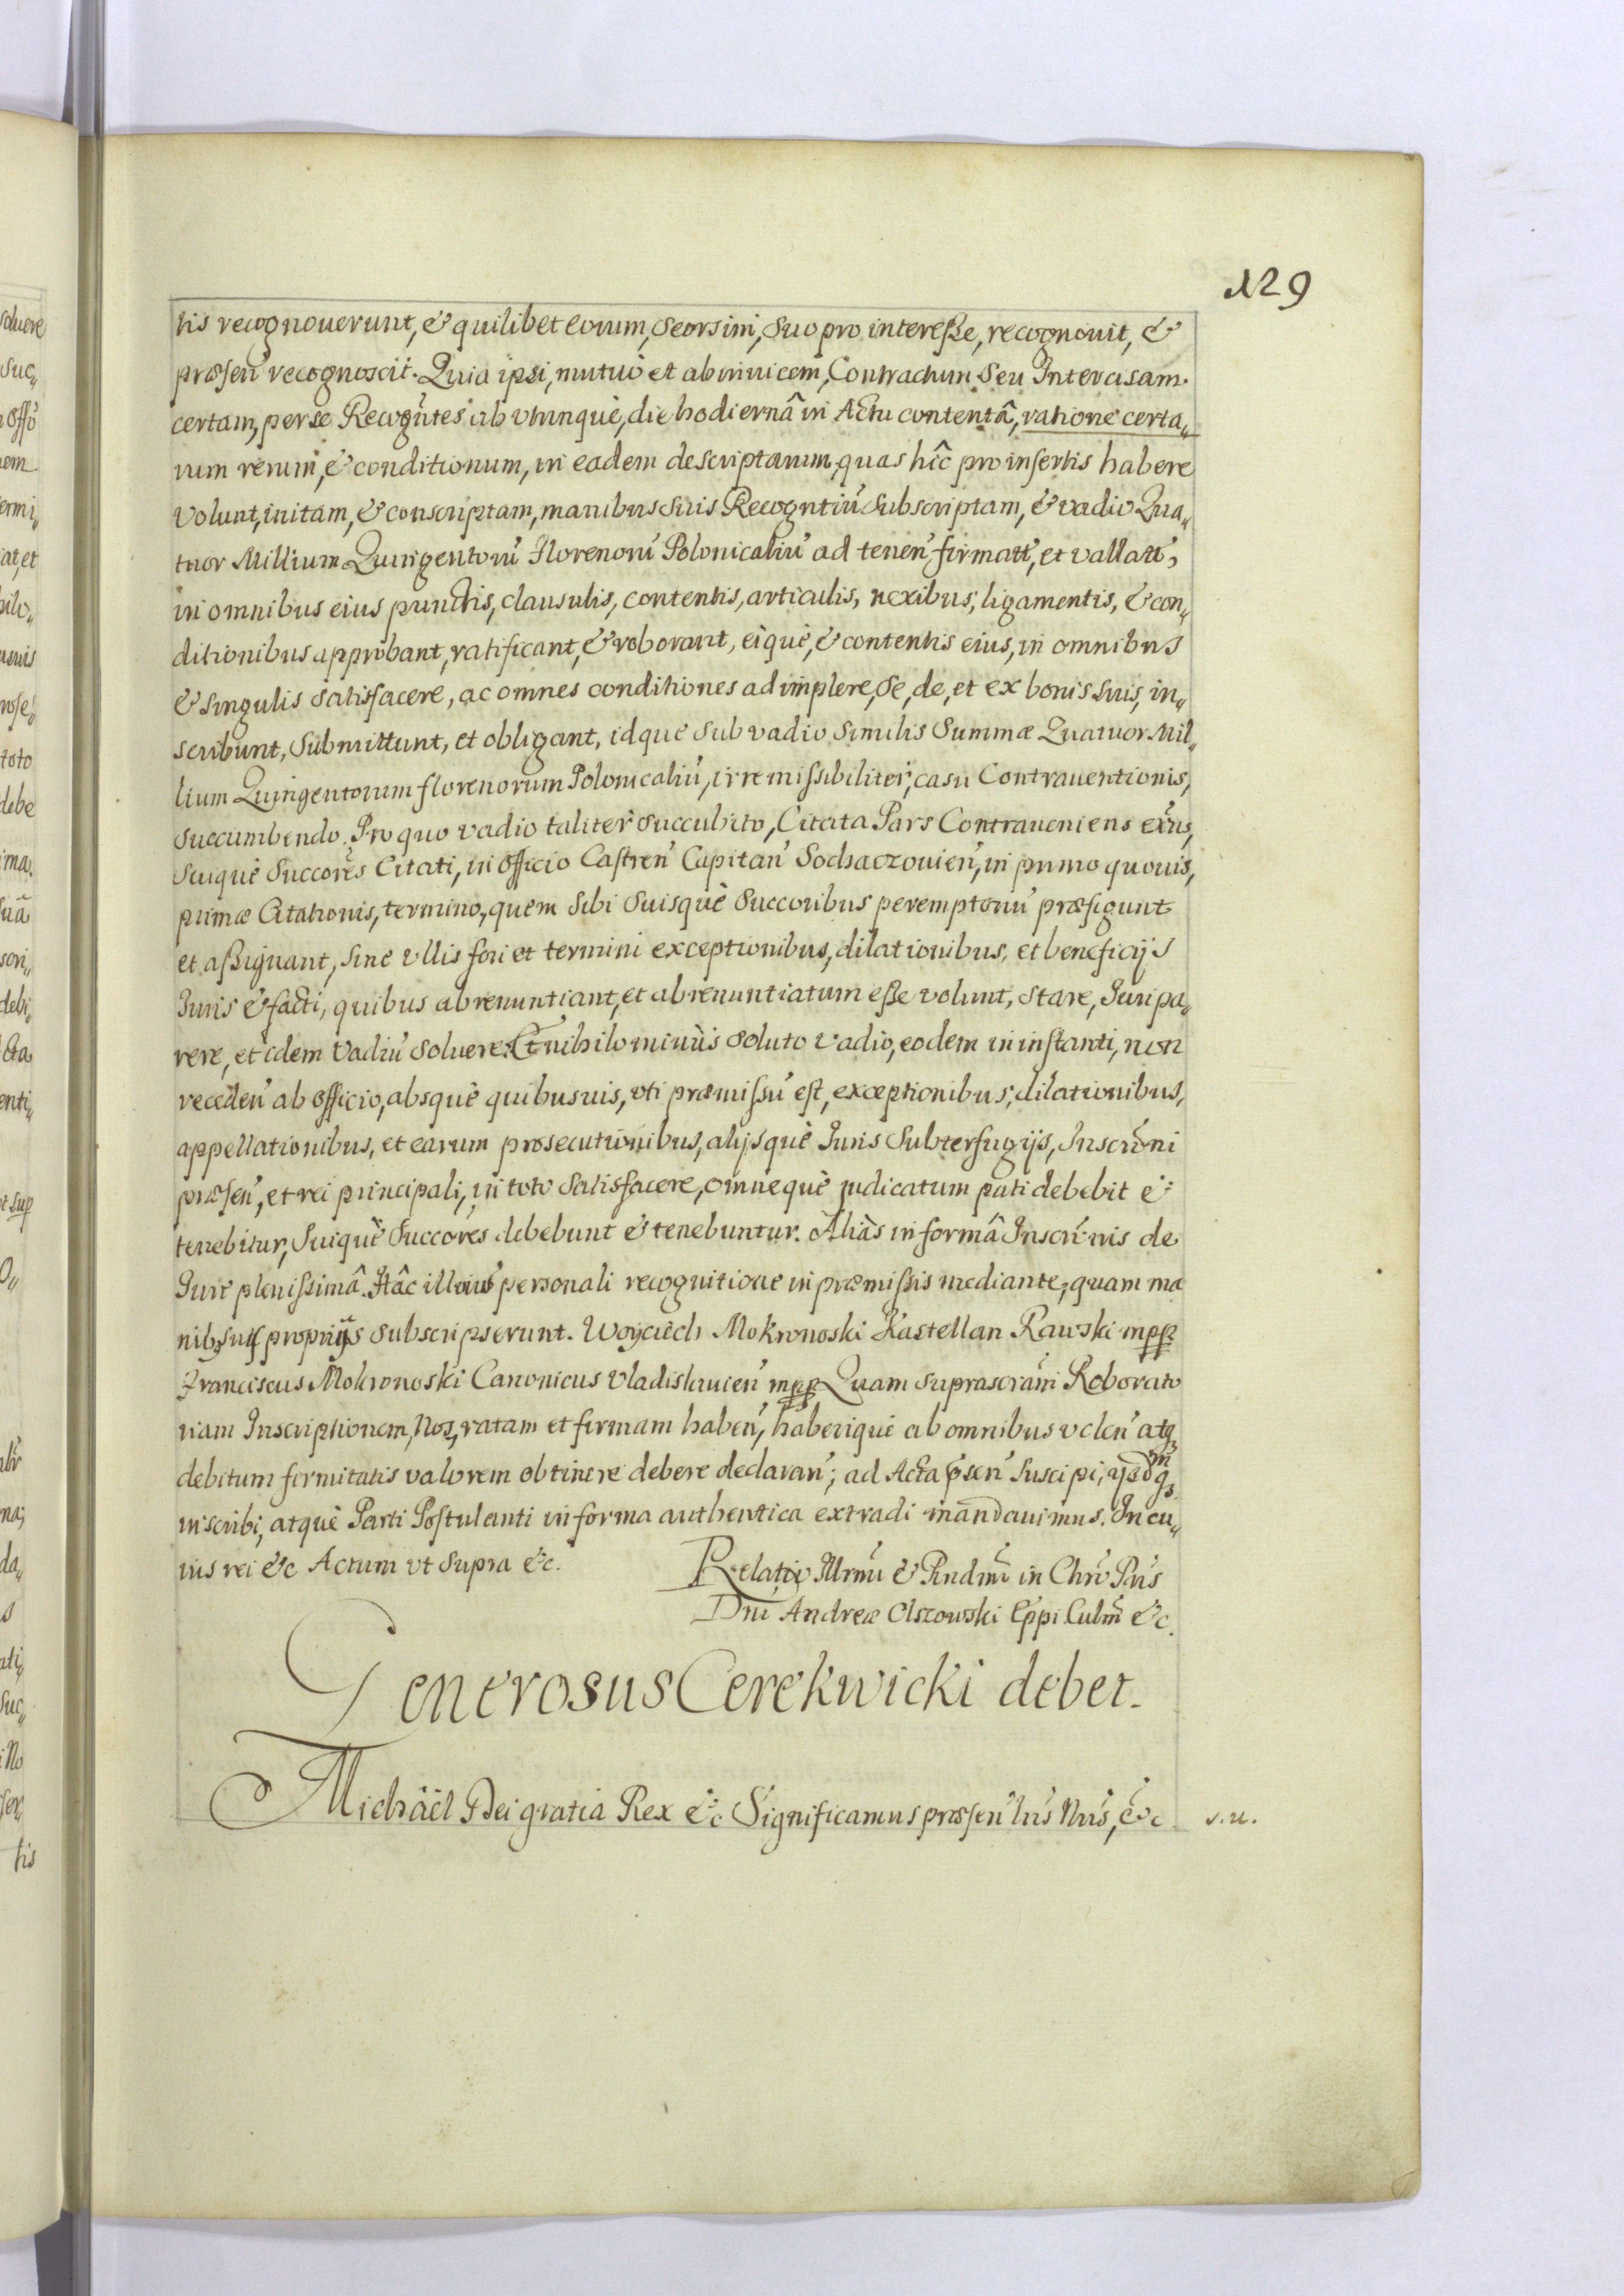 129
tis recognouerunt, & quilibet eorum, seorsim, suo pro interesse, recognouit, &
præsen̄ recognoscit. Quia ipsi, mutuò et ab inuicem, Contractum seu Intercisam
certam, per se Recogn̄tes ab vtrinquè, die hodiernâ in Actu contentâ, ratione certa„
rum rerum, & conditionum, in eadem descriptarum, quas hîc pro insertis habere
volunt, initam, & conscriptam, manibus suis Recogntiū subscriptam, & vadio Qua„
tuor Millium Quingentorū Florenorū Polonicaliū ad tenen̄ firmatt, et vallatt,
in omnibus eius punctis, clausulis, contentis, articulis, nexibus, ligamentis, & con„
ditionibus approbant, ratificant, & roborant, eiquè, & contentis eius, in omnibus
& singulis satisfacere, ac omnes conditiones adimplere, se, de, et ex bonis suis, in„
scribunt, submittunt, et obligant, idque sub vadio similis Summæ Quatuor Mil„
lium Quingentorum florenorum Polonicaliū, irremissibiliter, casu Contrauentionis,
succumbendo. Pro quo vadio taliter succubito, Citata Pars Contraueniens eius,
suiquè Succor̄es Citati, in Officio Castren̄ Capitan̄ Sochaczouien̄, in primo quouis,
primæ Citationis, termino, quem sibi suisquè Succoribus peremptoriū præfigunt
et assignant, sine vllis fori et termini exceptionibus, dilationibus, et beneficijs
Iuris & facti, quibus abrenuntiant, et abrenuntiatum esse volunt, stare, Iuri pa„
rere, et idem vadiū soluere. Et nihilominùs soluto vadio, eodem in instanti, non
receden̄ ab officio, absquè quibusuis, vti præmissū est, exceptionibus, dilationibus,
appellationibus, et earum prosecutionibus, alijsquè Iuris Subterfugijs, Inscr̄ni
præsen̄, et rei principali, in toto satisfacere, omnequè judicatum pati debebit &
tenebitur, suiquè Succor̄es debebunt & tenebuntur. Aliàs in formâ Inscr̄nis de
Iure plenissimâ. Hâc illorū personali recognitione in præmissis mediante, quam ma
nibȝ suis proprijs subscripserunt. Woyciech Mokronoski Kastellan Rawski mpp
Franciscus Mokronoski Canonicus Vladislauien̄ mpp Quam suprascr̄am Roborato
riam Inscriptionem, Nos, ratam et firmam haben̄, haberique ab omnibus volen̄ atqȝ
debitum firmitatis valorem obtinere debere declaran̄; ad Acta p̄sen̄ suscipi, ijsdmqȝ
inscribi, atquè Parti Postulanti in forma authentica extradi mandauimus. In cu„
ius rei &c Actum vt supra &c.
Relatio Illr̄mi & Rndm̄i in Chr̄o Pr̄is
Dn̄i Andreæ Olszowski Ep̄pi Culm̄ &c.
Generosus Cerekwicki debet.
Michäel Dei gratia Rex &c Significamus præsen̄ l̄ris Nr̄is, &c s. u.